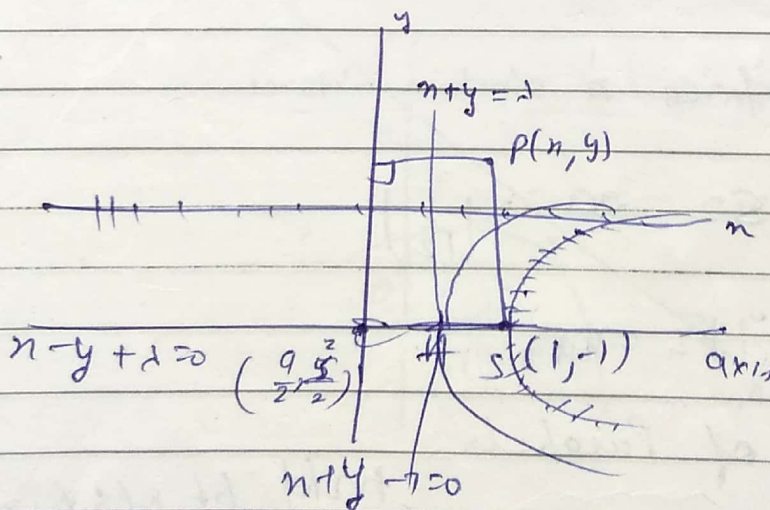 y
x+y=λ
P(x,y)
x
x-y+λ=0
S(1,-1)
axis
x+y-7=0